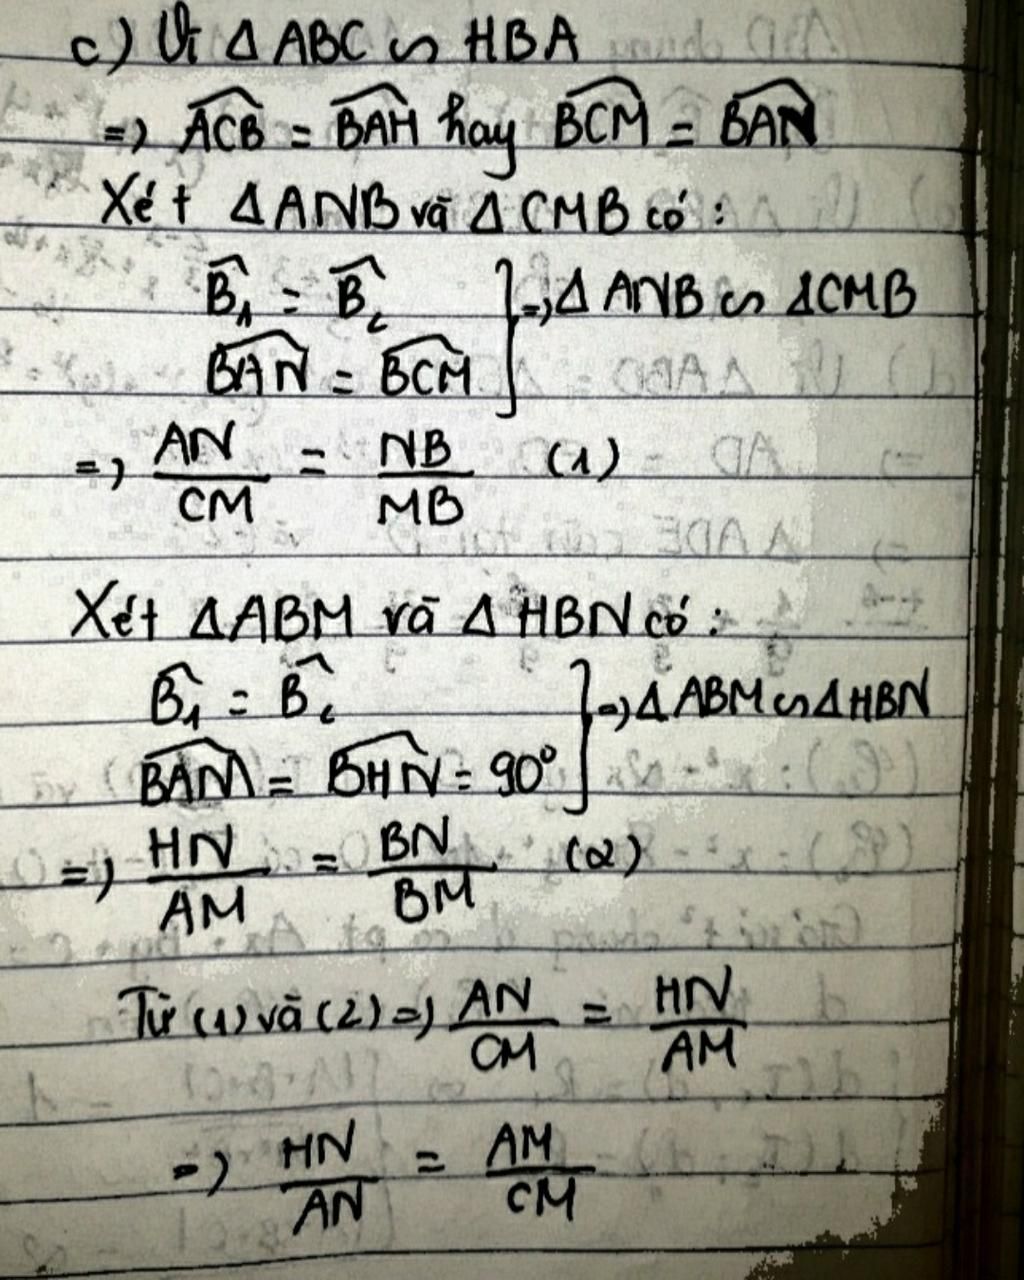 c) Vì Δ ABC ∽ HBA
=> ACB = BAH hay BCM = BAN
Xét Δ ANB và Δ CMB có :
B₁ = B₂
BAN = BCM
=> Δ ANB ∽ ΔCMB
=> AN/CM = NB/MB (1)
Xét ΔABM và Δ HBN có :
B₁ = B₂
BAM = BHN = 90°
=> Δ ABM ∽ ΔHBN
=> HN/AM = BN/BM (2)
Từ (1) và (2) => AN/CM = HN/AM
=> HN/AN = AM/CM